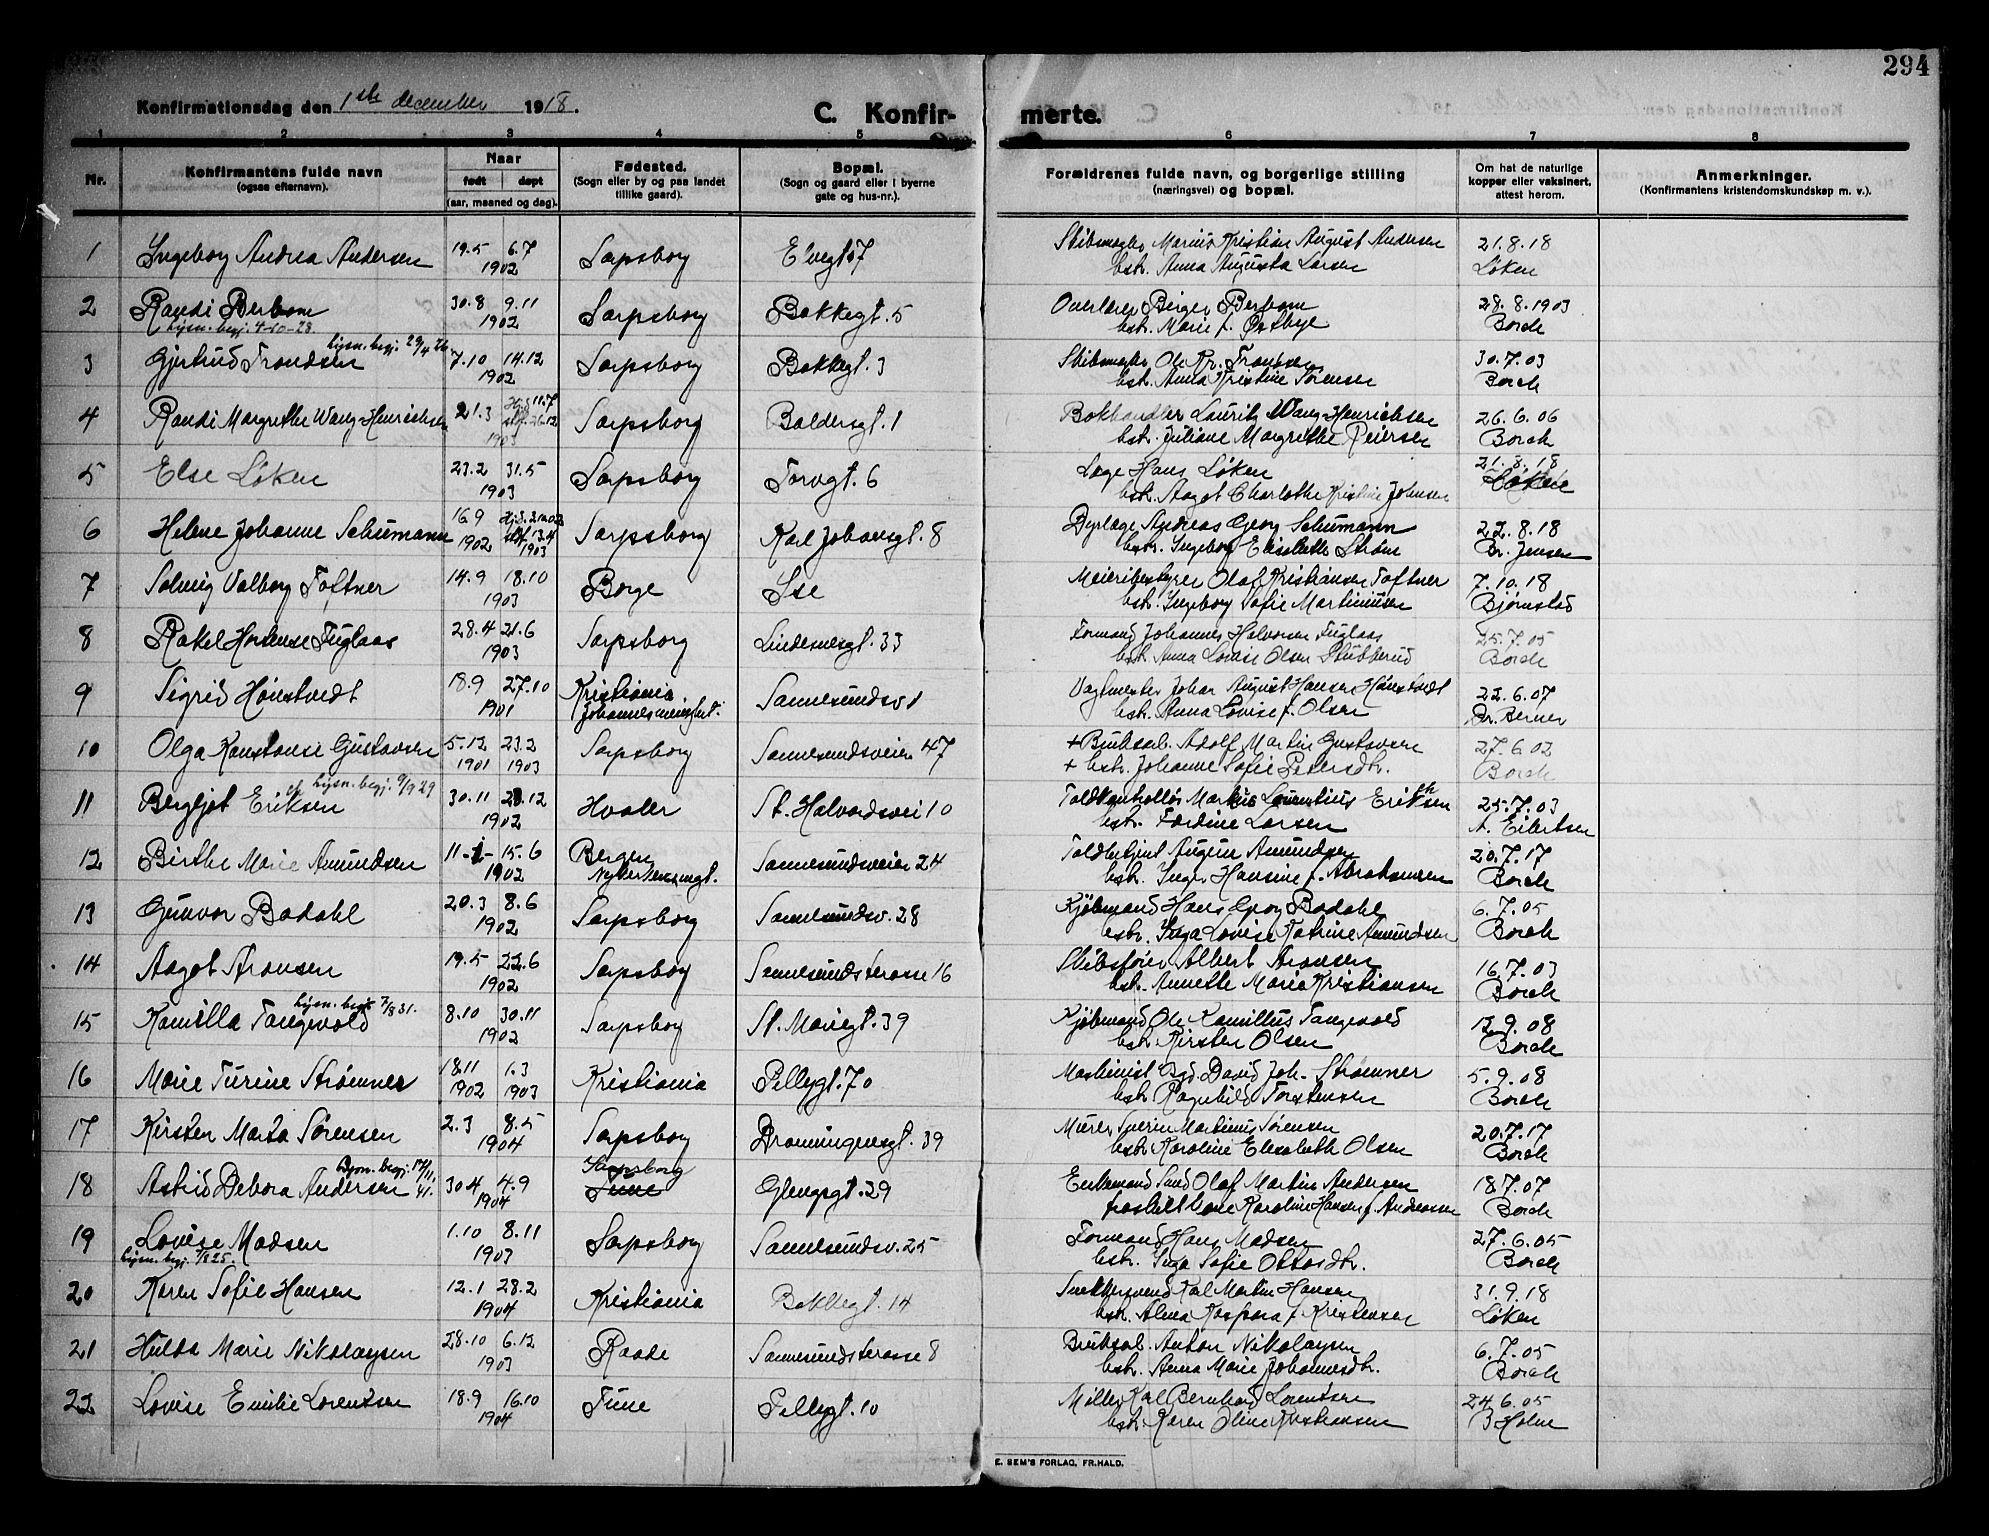 294
Konfirmationsdag den 1ste december 1918.
C. Konfir-
merte.
1 2 3 4 5 6 7 8
Nr.
Konfirmantens fulde navn
(ogsaa efternavn).
Naar
født døpt
(aar, maaned og dag).
Fødested.
(Sogn eller by og paa landet
tillike gaard).
Bopæl.
(Sogn og gaard eller i byerne
gate og hus-nr.).
Forældrenes fulde navn, og borgerlige stilling
(næringsvei) og bopæl.
Om hat de naturlige
kopper eller vaksinert,
attest herom.
Anmerkninger.
(Konfirmantens kristendomskundskap m. v.).
1 Ingeborg Andrea Andersen 19.5 6.7 1902 Sarpsborg Elvegt. 7 Marius Kristian August Andersen 21.8.18
hstr. Anna Augusta Larsen Løken
2 Randi Berbom 30.8 9.11 1902 Sarpsborg Bakkegt. 5 Overlærer Birger Berbom 28.8.1903
lysn. begj. 4-10-28 hstr. Marie f. Østbye Borch
lysn. begj. 29/4 26.
3 Gjertrud Trondsen 7.10 14.12 1902 Sarpsborg Bakkegt. 3 Ole Kr. Trondsen 30.7.03
hstr. Anna Kristine Sørensen Borch
4 Randi Margrethe Wang-Henrichsen 21.3 Hjd. 11.7 stf. 26.12 1903 Sarpsborg Baldersgt. 1 Bokhandler Lauritz Wang-Henrichsen 26.6.06
hstr. Juliane Margrethe Peiersen Borch
5 Else Løken 23.2 31.5 1903 Sarpsborg Torvgt. 6 Læge Hans Løken 21.8.18
hstr. Aagot Charlotte Kristine Johnsen Løken
6 Helene Johanne Schumann 16.9 1902 stf. 13.4 1903 Sarpsborg Karl Johansgt. 8 Dyrlæge Andreas Georg Schumann 22.8.18
hstr. Ingeborg Elisabeth Strøm Br. Jensen
7 Solveig Valborg Toftner 14.9 18.10 1903 Borge Ise Meieribestyrer Olaf Kristiansen Toftner 7.10.18
hstr. Ingeborg Sofie Martinusen Bjørnstad
8 Rakel Hortense Fuglaas 28.4 21.6 1903 Sarpsborg Lindemsgt. 33 Formand Johannes Halvorsen Fuglaas 25.7.05
hstr. Anna Lovise Olsen Stubberud Borch
9 Sigrid Hønstvedt 18.9 27.10 1901 Kristiania Sannesundsv 1 Vagtmester Johan August Hansen Hønstvedt 22.6.07
hstr. Anna Lovise f. Olsen Dr. Berner
10 Olga Konstanse Gustavsen 5.12 1901 23.2 1903 Sarpsborg Sannesundsveien 47 + Bruksarb. Adolf Martin Gustavsen 27.6.02
+ hstr. Johanne Sofie Petersdtr. Borch
lysn. begj. 9/9 29
11 Bergljot Eriksen 30.11 28.12 1902 Hvaler St. Halvardsvei 10 Toldkontrollør Markus Laurentius Eriksen 25.7.03
hstr. Fardine Larsen A. Eilertsen
12 Birthe Marie Amundsen 11-1- 15.6 1902 Bergen Sannesundsveien 24 Toldbetjent August Amundsen 20.7.17
hstr. Inger Hansine f. Abrahamsen Borch
13 Gunvor Badahl 20.3 8.6 1902 Sarpsborg Sannesundsv. 28 Kjøbmand Hans Georg Badahl 6.7.05
hstr. Inga Lovise Katrine Amundsen Borch
14 Aagot Aronsen 19.5 22.6 1902 Sarpsborg Sannesundsterasse 16 Skibsfører Albert Aronsen 16.7.03
hstr. Annette Marie Kristiansen Borch
lysn. begj 7/8 31.
15 Kamilla Tangevold 8.10 30.11 1902 Sarpsborg St. Mariegt. 39 Kjøbmand Ole Kamillus Tangevold 12.9.08
hstr. Kirsten Olsen Borch
16 Marie Turine Strømner 18.11 1902 1.3 1903 Kristiania Pellygt. 70 Maskinist David Joh. Strømner 5.9.08
hstr. Ragnhild Torstensen Borch
17 Kirsten Marta Sørensen 2.3 8.5 1904 Sarpsborg Dronningensgt. 39 Murer Severin Martinus Sørensen 20.7.17
hstr. Karoline Elisabeth Olsen Borch
lysn. begj. 14/11. 41.
18 Astrid Debora Andersen 30.4 4.9 1904 Sarpsborg Tune Glengsgt. 29 Enkemand Olaf Martin Andersen 18.7.07
fraskilt Karoline Hansen f. Andreassen Borch
19 Lovise Madsen 1.10 8.11 1903 Sarpsborg Sannesundsv. 25 Formand Hans Madsen 27.6.05
lysn. begj. 1/8 25. hstr. Inga Sofie Ottosdtr. Borch
20 Karen Sofie Hansen 12.1 28.2 1904 Kristiania Bakkegt. 14 Snekkersvend Karl Martin Hansen 31.9.18
hstr. Alma Kaspara f. Kristensen Løken
21 Hulda Marie Nikolaysen 28.10 6.12 1903 Raade Sannesundsterasse 8 Bruksarb. Anton Nikolaysen 6.7.05
hstr. Anna Marie Johannesdtr. Borch
22 Lovise Emilie Lorentsen 18.9 16.10 1904 Tune Pellygt. 10 Møller Karl Bernhard Lorentsen 24.6.05
hstr. Karen Oline Kristiansen B Holm
E. SEM'S FORLAG, FR.HALD.